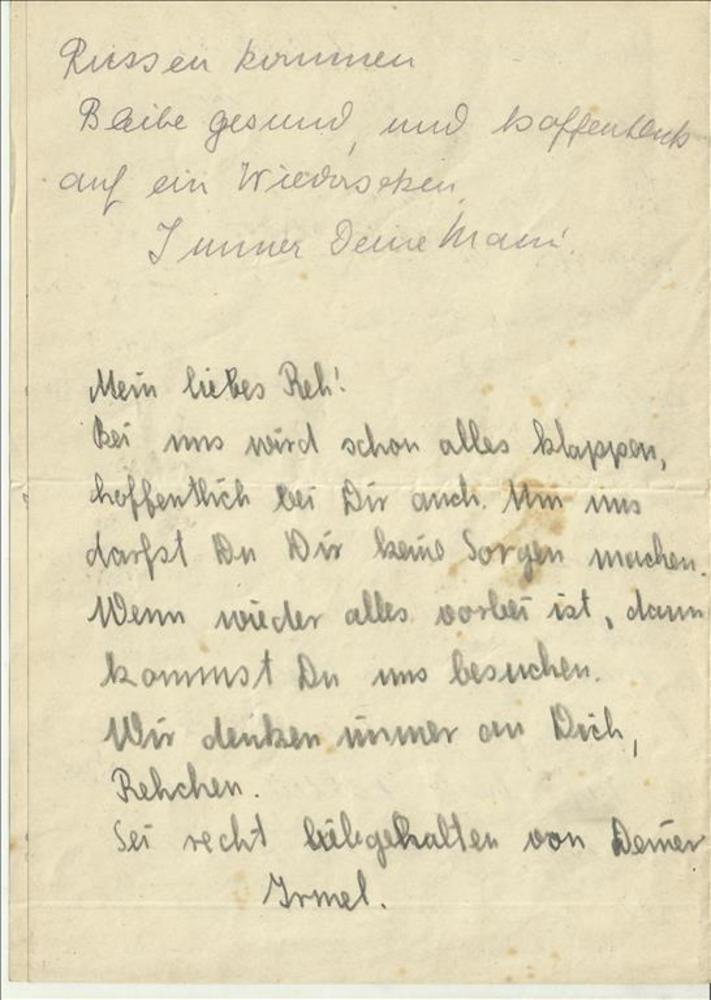 Russen kommen
Bleibe gesund, und hoffentlich
auf ein Wiedersehen,
Immer Deine Mami.
Mein liebes Reh!
Bei uns wird schon alles klappen,
hoffentlich bei Dir auch. Um uns
darfst Du Dir keine Sorgen machen.
Wenn wieder alles vorbei ist, dann
kommst Du uns besuchen.
Wir denken immer an Dich,
Rehchen.
Sei recht liebgehalten von Deiner
Irmel.